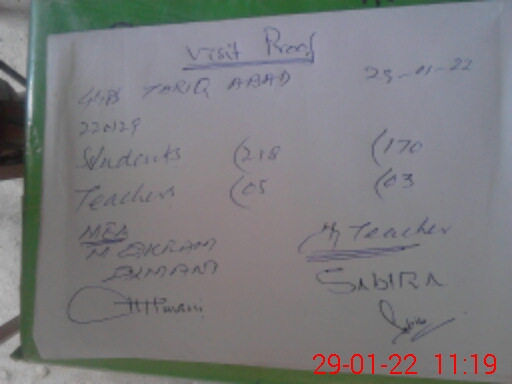 Visit Proof
TARIQ ABAD 29-01-22
220129
Students (218 (170
Teachers (05 (03
MEA Teacher
M EKRAM SABIRA
29-01-22 11:19